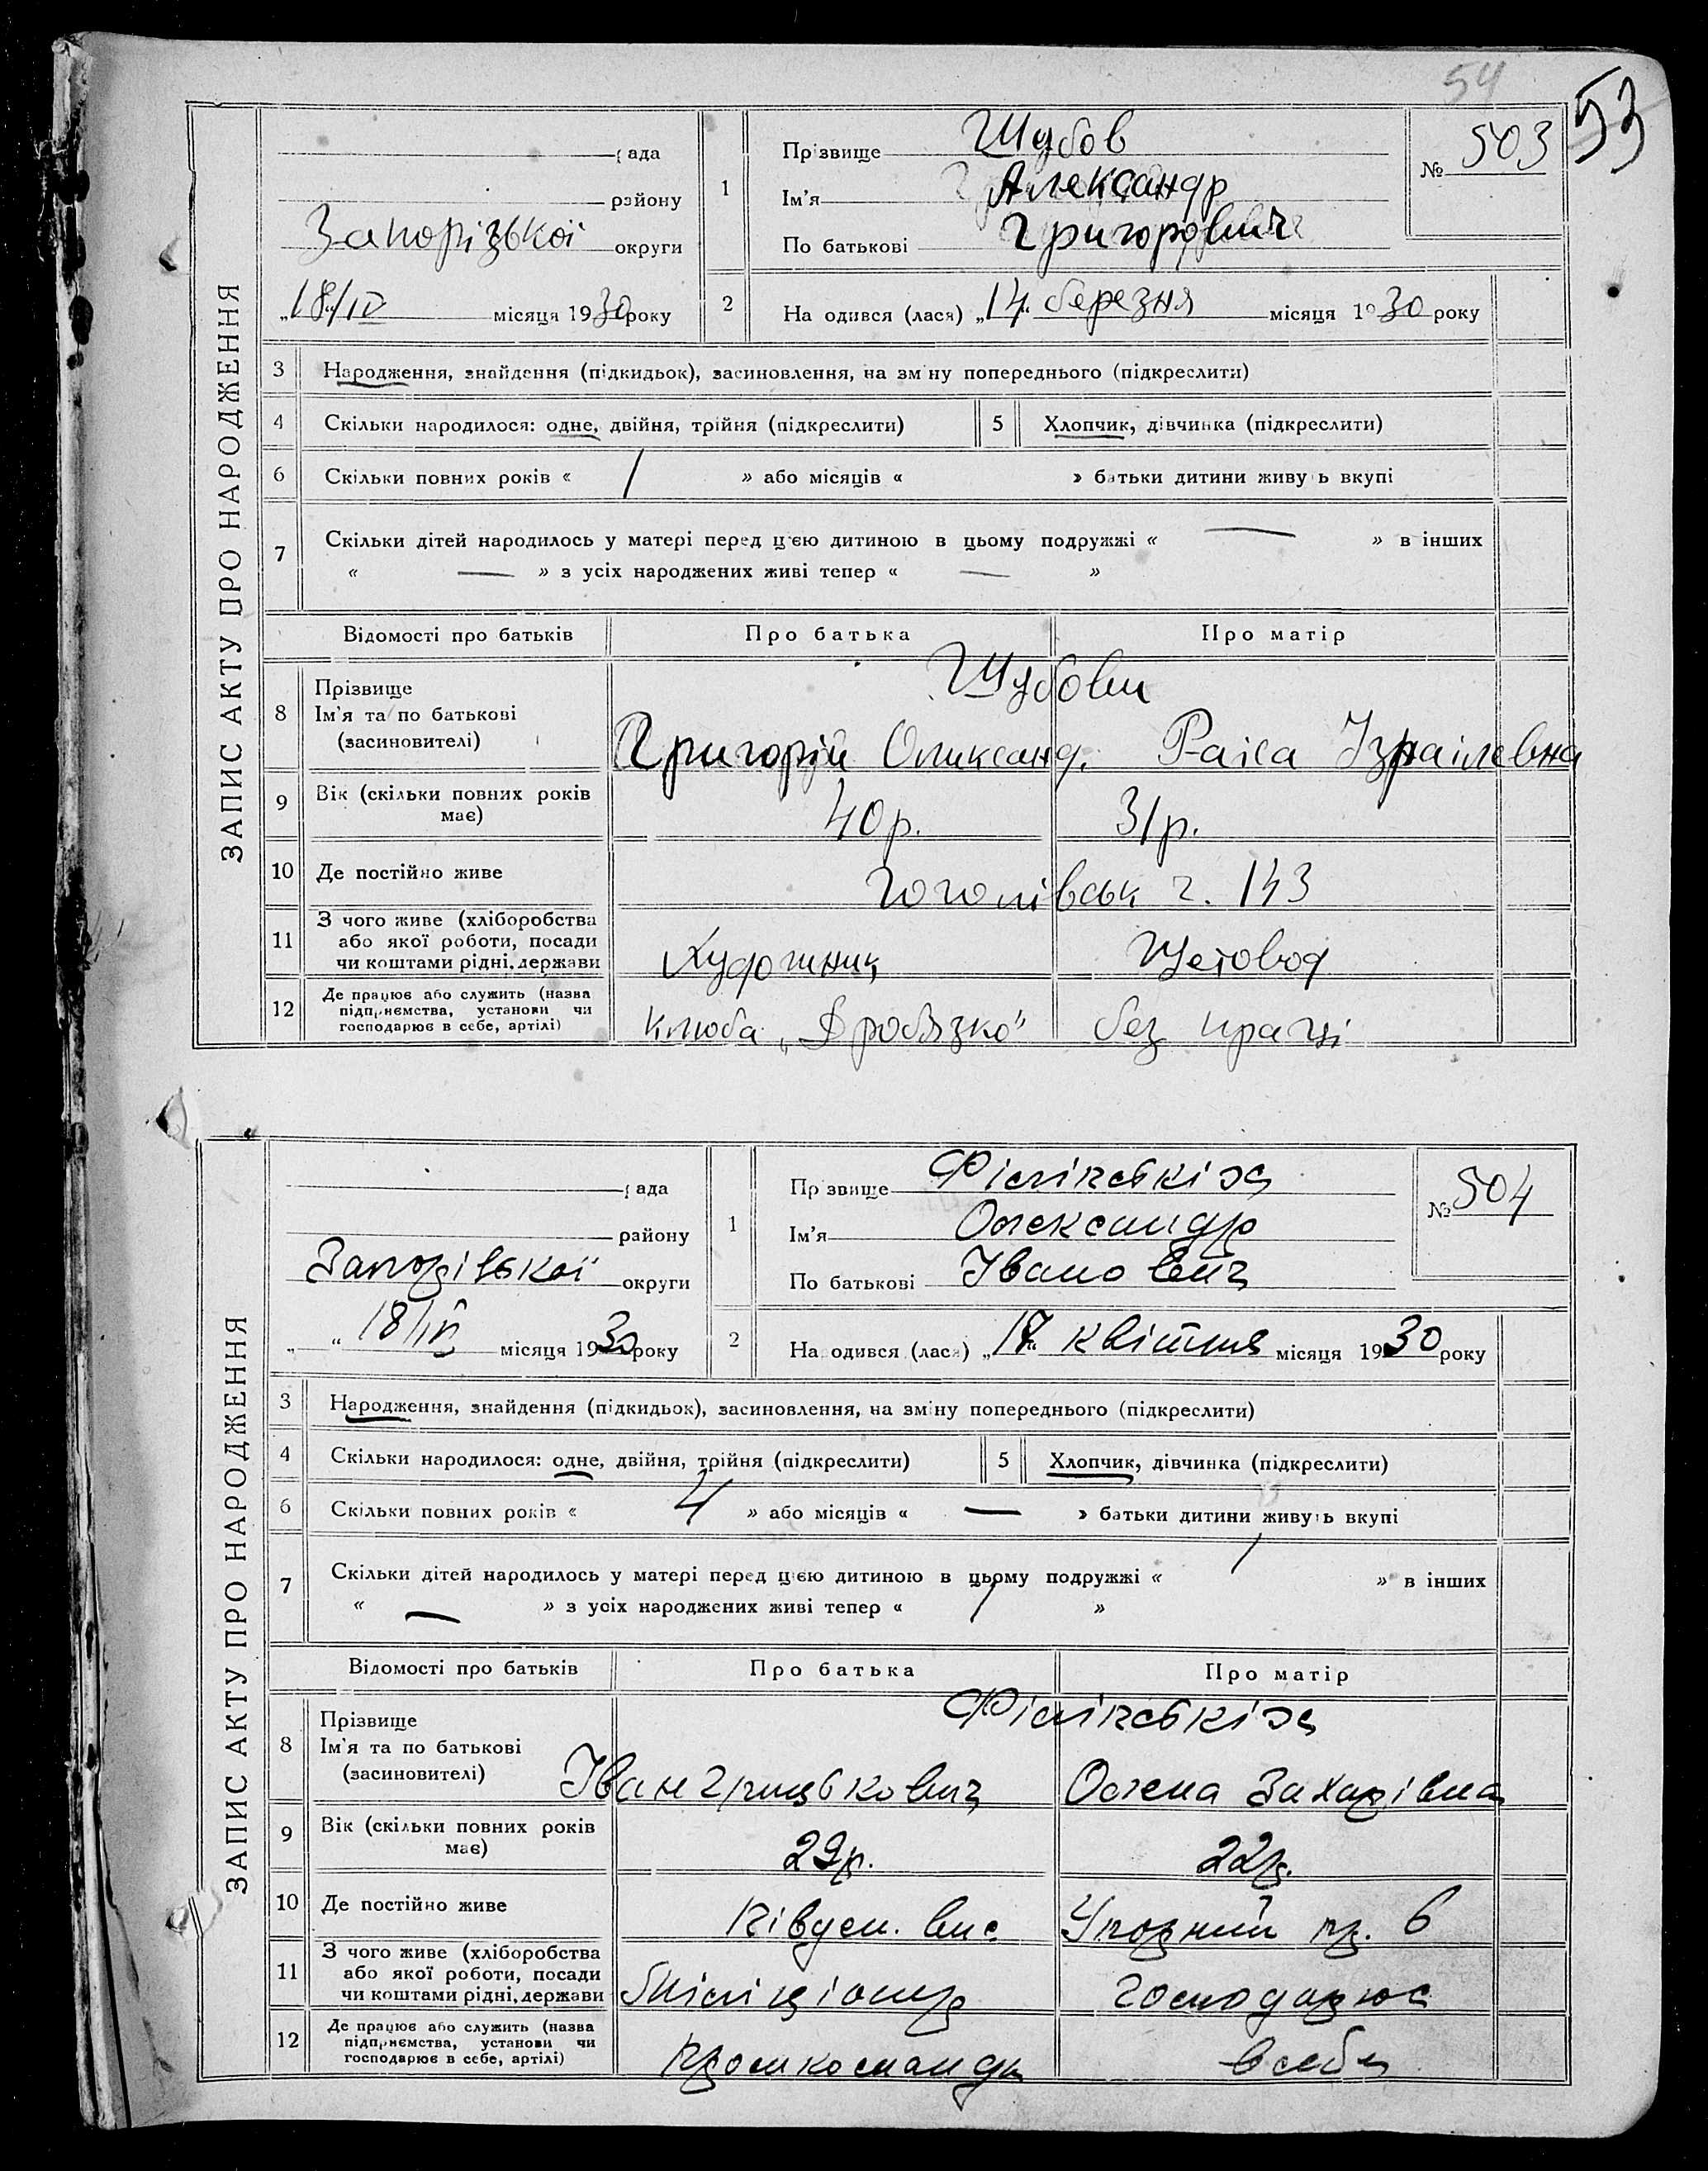 54
53
ЗАПИС АКТУ ПРО НАРОДЖЕННЯ
рада
району
Запорізької округи
„18/IV місяця 1930 року
1 Прізвище Шубов
Ім'я Александр
По батькові Григорович
№ 503
2 Народився (лася) „14" березня місяця 1930 року
3 Народження, знайдення (підкидьок), засиновлення, на зміну попереднього (підкреслити)
4 Скільки народилося: одне, двійня, трійня (підкреслити) 5 Хлопчик, дівчинка (підкреслити)
6 Скільки повних років « 1 » або місяців « » батьки дитини живуть вкупі
7 Скільки дітей народилось у матері перед цією дитиною в цьому подружжі « — » в інших
« — » з усіх народжених живі тепер « — »
Відомості про батьків Про батька Про матір
8 Прізвище Шубови
Ім'я та по батькові
(засиновителі) Григорій Олександ. Раіса Ізраілевна
9 Вік (скільки повних років має) 40 р. 31 р.
10 Де постійно живе Гоголівськ ч. 143
11 З чого живе (хліборобства
або якої роботи, посади
чи коштами рідні, держави Художник Щетовод
12 Де працює або служить (назва
підприємства, установи чи
господарює в себе, артілі) клюба „Дробязко" без праці
ЗАПИС АКТУ ПРО НАРОДЖЕННЯ
рада
району
Запорізької округи
„ “ 18/IV місяця 1930 року
1 Прізвище Філіпськіх
Ім'я Олександр
По батькові Іванович
№ 504
2 Народився (лася) „17" квітня місяця 1930 року
3 Народження, знайдення (підкидьок), засиновлення, на зміну попереднього (підкреслити)
4 Скільки народилося: одне, двійня, трійня (підкреслити) 5 Хлопчик, дівчинка (підкреслити)
6 Скільки повних років « 4 » або місяців « — » батьки дитини живуть вкупі
7 Скільки дітей народилось у матері перед цією дитиною в цьому подружжі « 1 » в інших
« — » з усіх народжених живі тепер « 1 »
Відомості про батьків Про батька Про матір
8 Прізвище Філіпськіх
Ім'я та по батькові
(засиновителі) Іван Грицькович Олена Захарівна
9 Вік (скільки повних років має) 29 р. 22 р.
10 Де постійно живе Півден. вис. Упорний пр. 6
11 З чого живе (хліборобства
або якої роботи, посади
чи коштами рідні, держави Міліціонер господарює
12 Де працює або служить (назва
підприємства, установи чи
господарює в себе, артілі) Промкоманди в себе